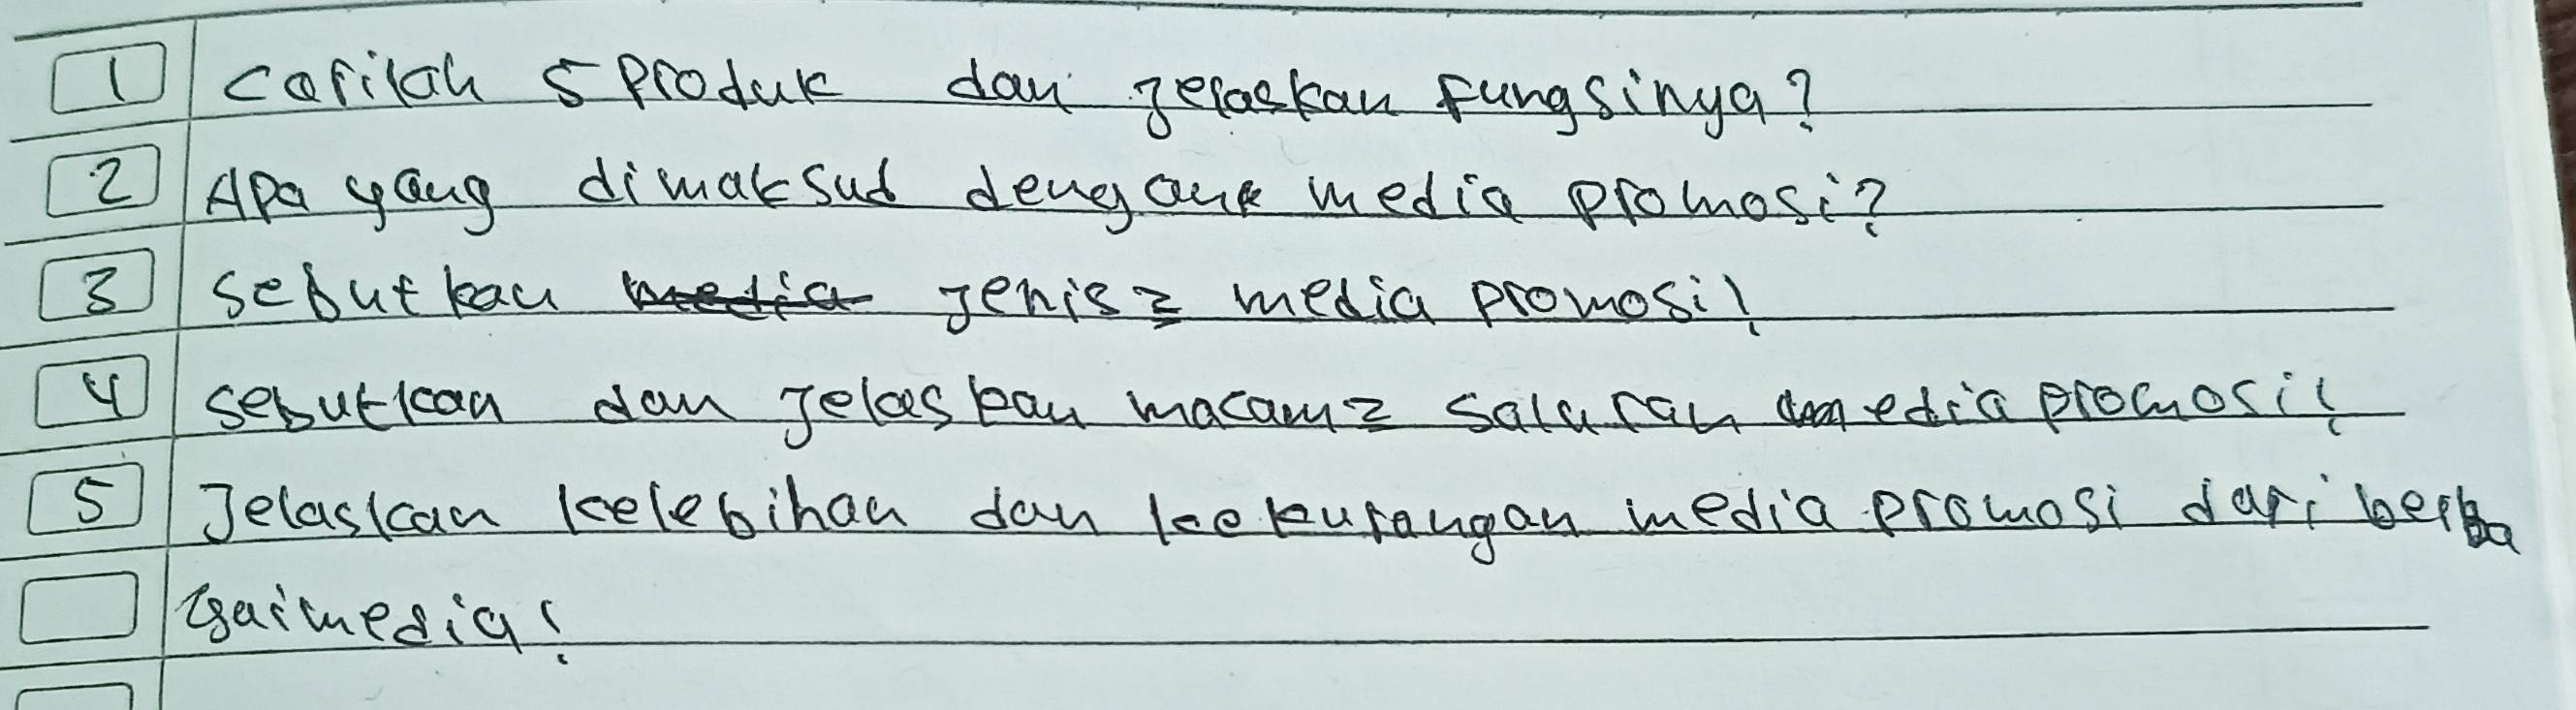 1 carilah 5 Produk dan jelaskan fungsinya?
2 Apa yang dimaksud dengan media promosi?
3 sebutkan media jenis2 media promosi!
4 sebutkan dan jelaskan macam2 saluran media promosi!
5 Jelaskan kelebihan dan kekurangan media promosi dari berba
gai media!